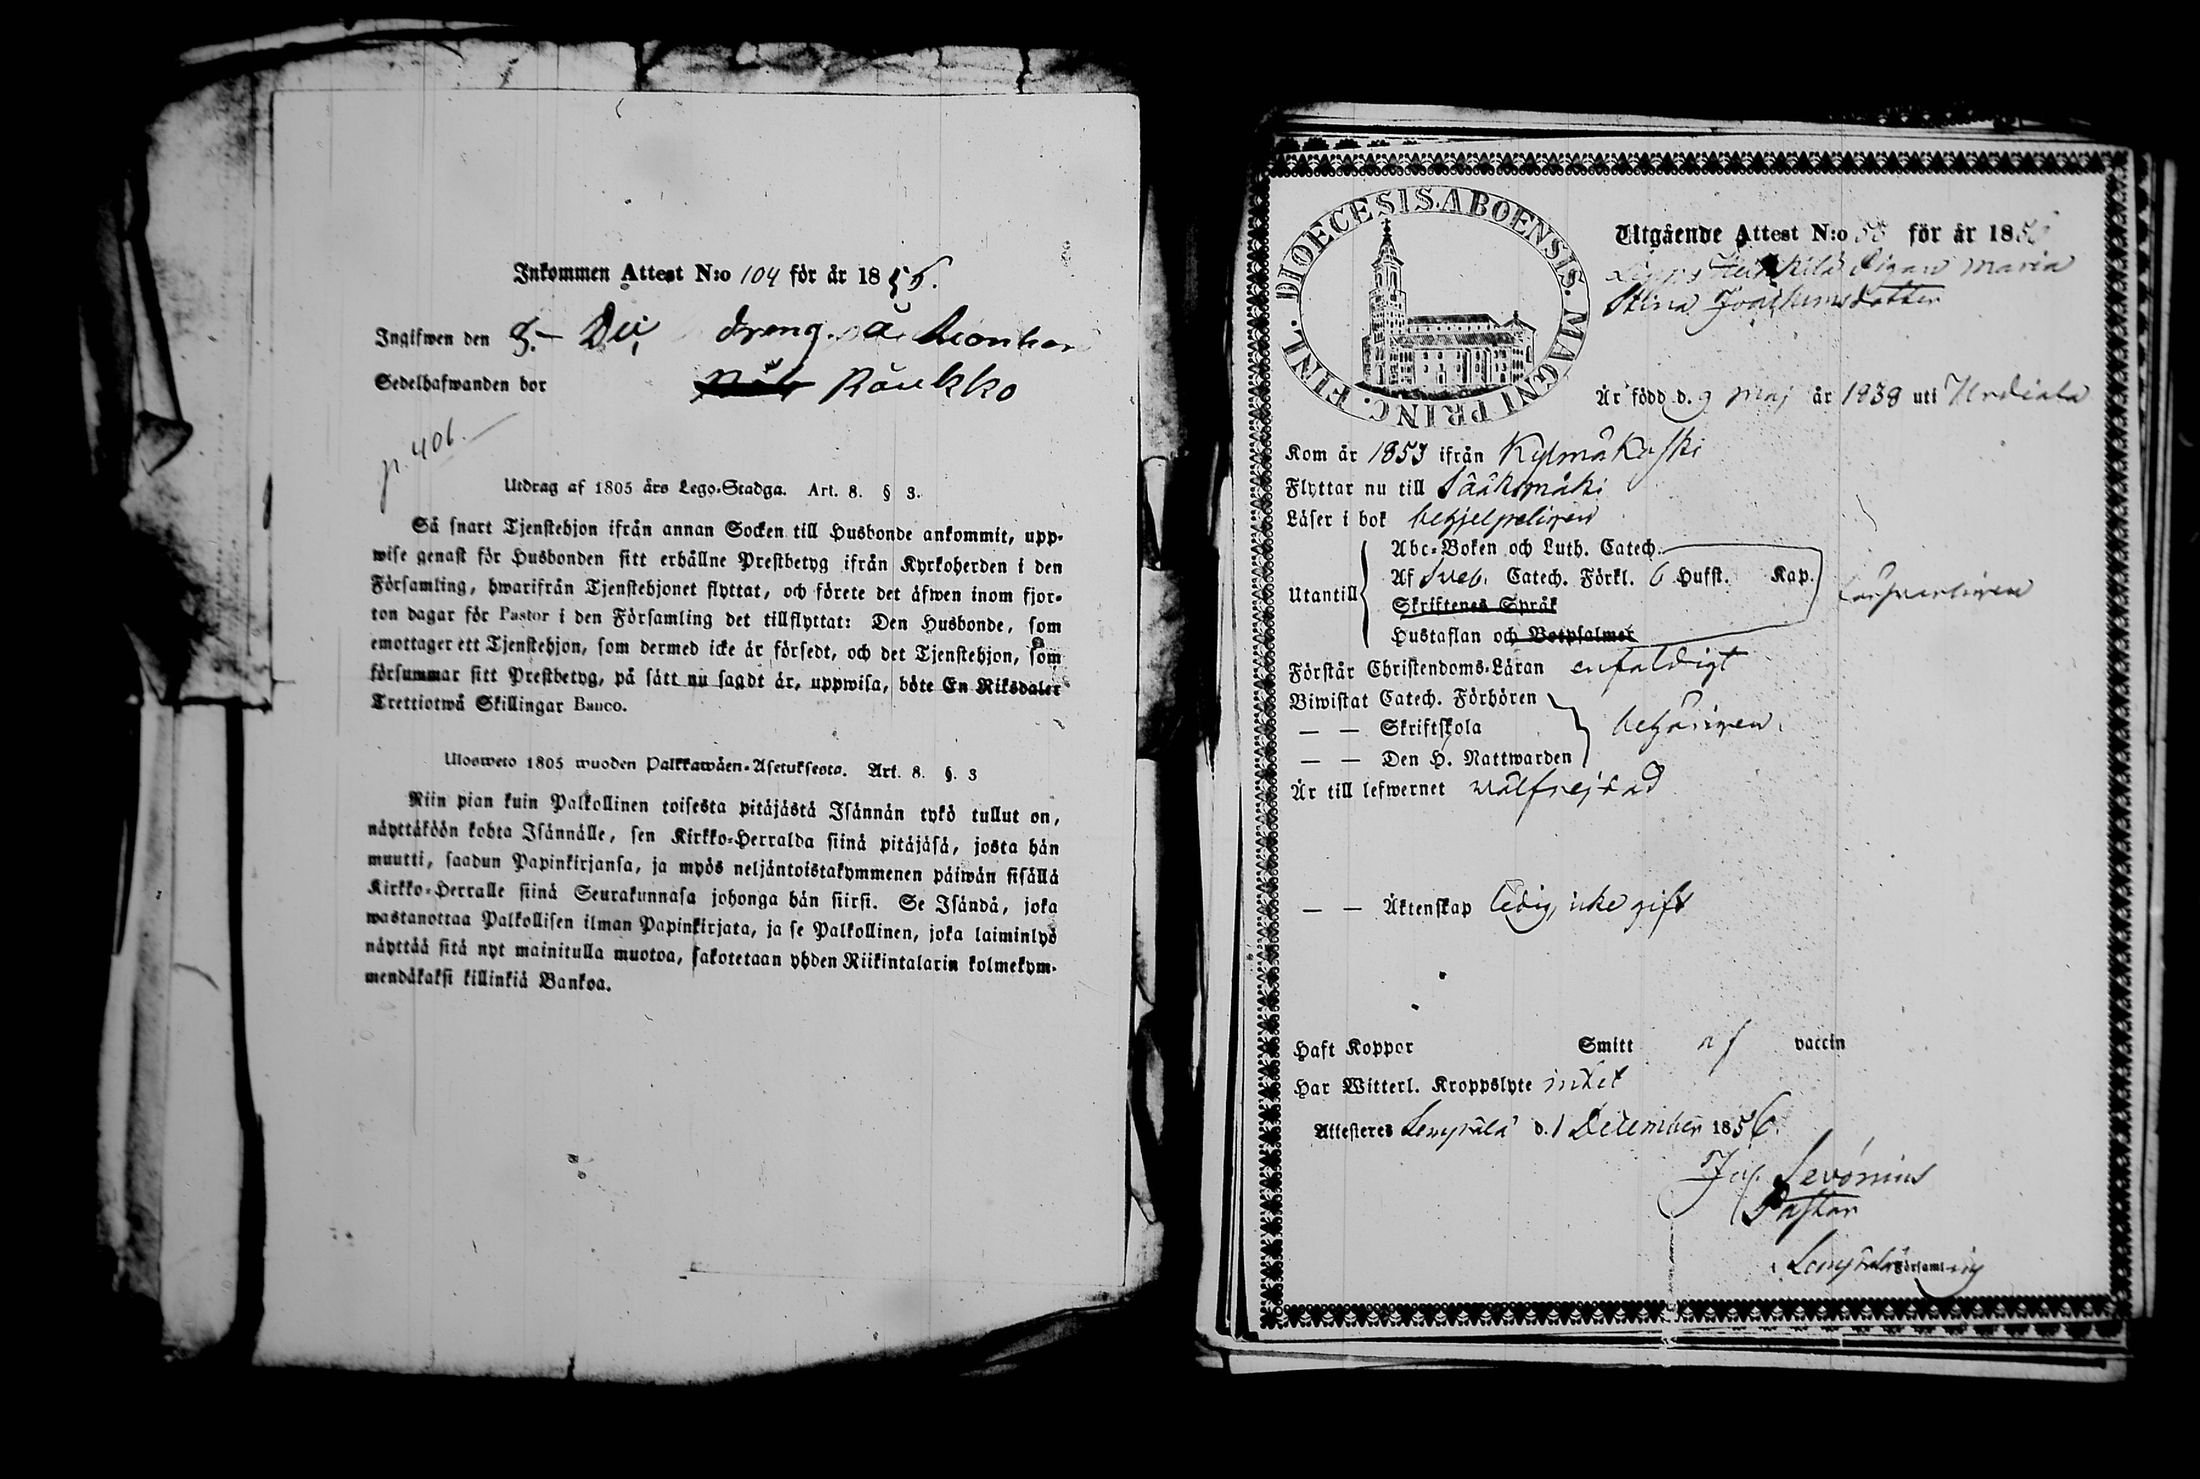 Inkommen Attest N:o 104 för år 1856.
Ingifwen den 8.- Dec. dreng. å
Sedelhafwanden bor Räukko
p. 406.
Utdrag af 1805 års Lego-Stadga. Art. 8. § 3.
Så snart Tjenstehjon ifrån annan Socken till Husbonde ankommit, upp-
wise genast för Husbonden sitt erhållne Prestbetyg ifrån Kyrkoherden i den
Församling, hwarifrån Tjenstehjonet flyttat, och förete det äfwen inom fjor-
ton dagar för Pastor i den Församling det tillflyttat: Den Husbonde, som
emottager ett Tjenstehjon, som dermed icke är försedt, och det Tjenstehjon, som
försummar sitt Prestbetyg, på sätt nu sagdt är, uppwisa, böte En Riksdaler
Trettiotwå Skillingar Banco.
Ulosweto 1805 wuoden Palkkawäen-Asetuksesta. Art. 8. §. 3
Niin pian kuin Palkollinen toisesta pitäjästä Isännän tykö tullut on,
näyttäköön kohta Isännälle, sen Kirkko-Herralda siinä pitäjäsä, josta hän
muutti, saadun Papinkirjansa, ja myös neljäntoistakymmenen päiwän sisällä
Kirkko-Herralle siinä Seurakunnasa johonga hän siirsi. Se Isändä, joka
wastanottaa Palkollisen ilman Papinkirjata, ja se Palkollinen, joka laiminlyö
näyttää sitä nyt mainitulla muotoa, sakotetaan yhden Riikintalarin kolmekym-
mendäkaksi killinkiä Bankoa.
DIOECESIS.ABOENSIS.MAGNI PRINC.FINL.
Utgående Attest N:o 58 för år 1856
Pigan Maria
Stina Joachimsdotter
Är född d. 9 Maj år 1838 uti Urdiala
Kom år 1853 ifrån Kylmäkoski
Flyttar nu till Sääksmäki
Läser i bok behjelpeligen
Utantill
Abc-Boken och Luth. Catech.
Af Sveb. Catech. Förkl. 6 Hufst. Kap.
Skriftenes Språk
Hustaflan och Botpsalmer
Förstår Christendoms-Läran enfaldigt
Biwistat Catech. Förhören
— — Skriftskola behörigen
— — Den H. Nattwarden
Är till lefwernet wälfrejdad
— — Äktenskap ledig, icke gift
Haft Koppor Smitt af vaccin
Har Witterl. Kroppslyte intet
Attesteres Lempälä d. 1 December 1856.
Jos. Sevonius
Pastor
i Lempälä Församling